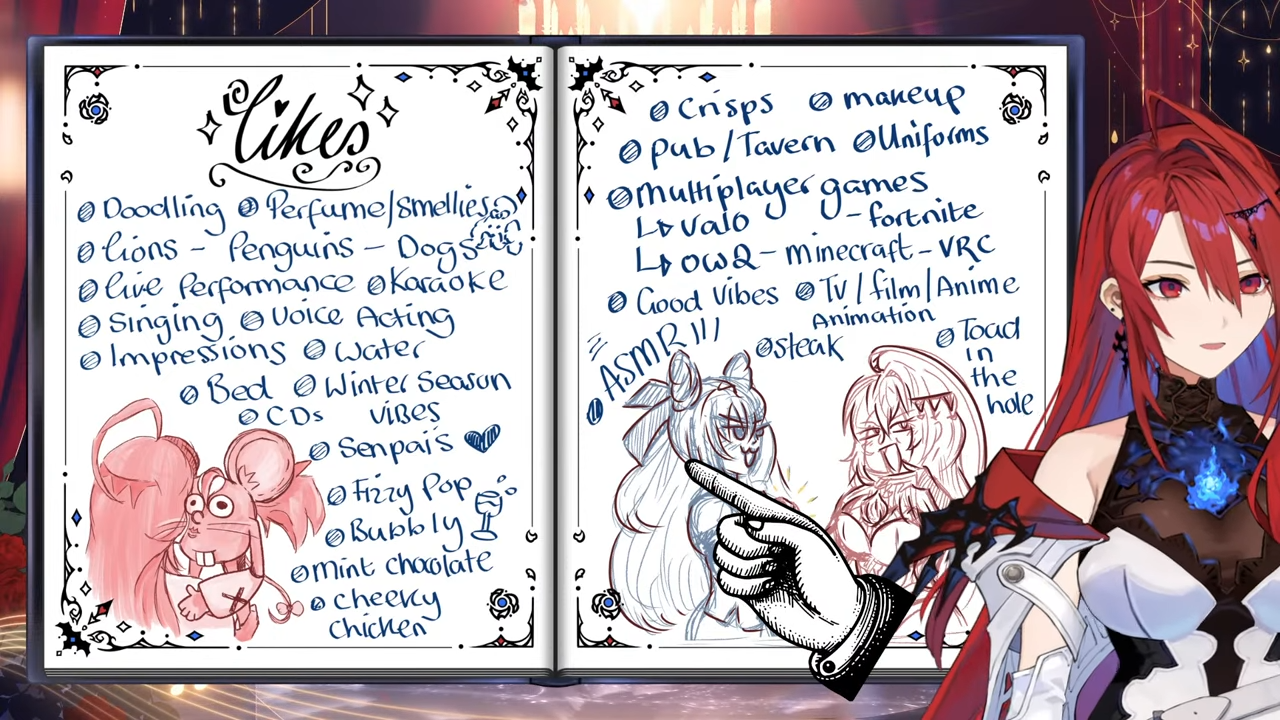 likes
Doodling Perfume/Smellies
Lions - Penguins - Dogs
Live Performance Karaoke
Singing Voice Acting
Impressions Water
Bed Winter Season
CDs VIBES
Senpai's
Fizzy Pop
Bubbly
Mint chocolate
Cheeky
Chicken
Crisps makeup
Pub/Tavern Uniforms
Multiplayer games
Valo - fortnite
OW2 - Minecraft - VRC
Good Vibes TV/film/Anime
Animation
ASMR!!! steak Toad
in
the
hole